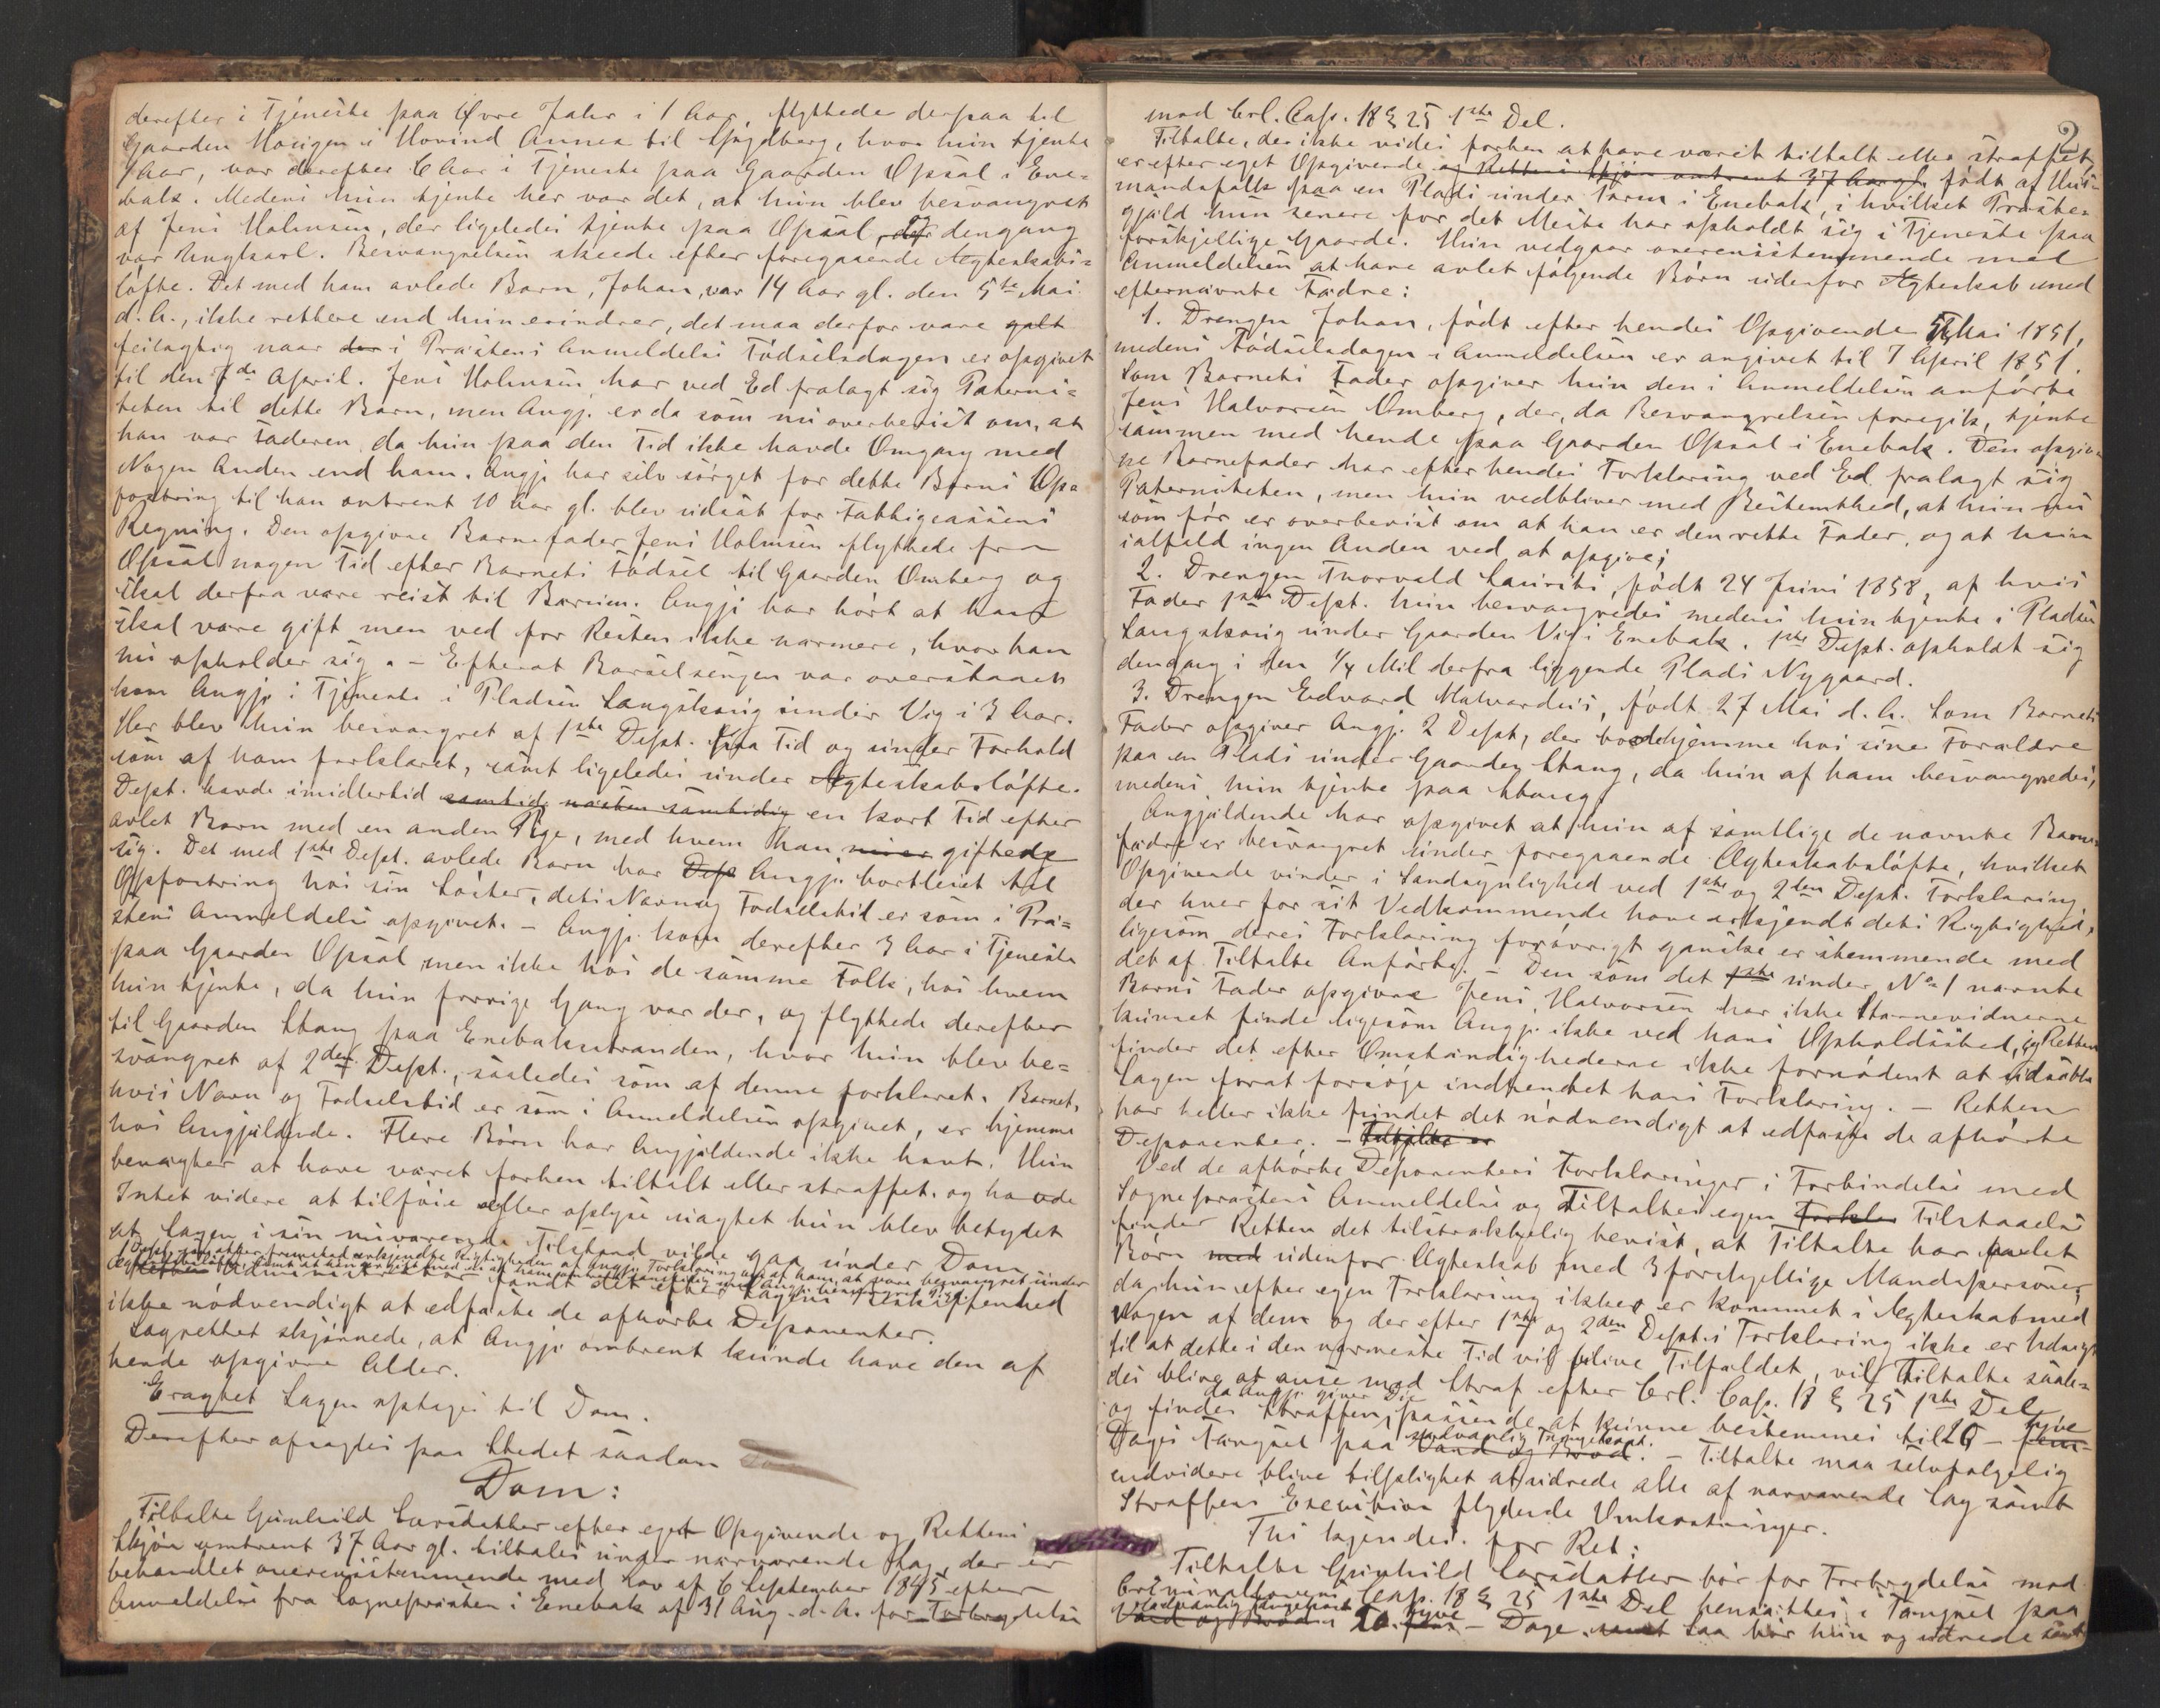 derefter i Tjeneste paa Øvre Jahr i 1 Aar, flyttede derpaa til
Gaarden Mocigen i Hovind Annex til Lygdberg, hvor hun tjente
1 Aar, var derefter 6 Aar i Tjeneste paa Gaarden Opsal i Ene-
bak. Medens hun tjente her var det, at hun blev besvangret
af Jens Holmsen, der ligeledes tjente paa Opsal, der dengang
var Ungkarl. Besvangrelsen skeede efter foregaaende Ægteskabs-
løfte. Det med ham avlede Barn, Johan, var 14 Aar gl. den 5te Mai
d. A., ikke rettere end hun erindrer, det maa derfor være galt
feilagtig naar der i Præstens Anmeldelse Fødselsdagen er opgivet
til den 7de April. Jens Holmsen har ved Ed fralagt sig Paterni-
teten til dette Barn, men Angj. er da som nu overbevist om, at
han var Faderen, da hun paa den Tid ikke havde Omgang med
Nogen Anden end ham. Angj. har selv sørget for dette Barns Op-
fostring til han omtrent 10 Aar gl. blev udsat for Fattigcassens
Regning. Den opgivne Barnefader Jens Holmsen flyttede fra
Opsal nogen Tid efter Barnets Fødsel til Gaarden Omberg og
skal derfra være reist til Bærum. Angj. har hørt at han
skal være gift men ved for Resten ikke nærmere, hvor han
nu opholder sig. – Efterat Barselsengen var overstaaet
kom Angj. i Tjeneste i Pladsen Langskoug under Vig i 3 Aar.
Her blev hun besvangret af 1ste Dept. paa Tid og under Forhold
som af ham forklaret, samt ligeledes under Ægteskabsløfte.
Dept. havde imidlertid samtid næsten samtidig en kort Tid efter
avlet Barn med en anden Pige, med hvem han nu er giftede
sig. Det med 1ste Dept. avlede Barn har Dep Angj. bortleiet til
Opfostring hos sin Søster, dets Navn og Fødselstid er som i Præ-
stens Anmeldelse opgivet. – Angj. kom derefter 3 Aar i Tjeneste
paa Gaarden Opsal men ikke hos de samme Folk, hos hvem
hun tjente, da hun forrige Gang var der, og flyttede derefter
til Gaarden Stang paa Enebakstranden, hvor hun blev be-
svangret af 2den Dept., saaledes som af denne forklaret. Barnet,
hvis Navn og Fødselstid er som i Anmeldelsen opgivet, er hjemme
hos Angjældende. Flere Børn har Angjældende ikke havt. Hun
benægter at have været forhen tiltalt eller straffet. og havde
Intet videre at tilføie eller oplyse uagtet hun blev betydet
at Sagen i sin nuværende Tilstand vilde gaa under Dom.
1 Dept. erkjendte Rigtigheden af Angjs Forklaring om af ham at være besvangret under
Ægteskabsløfte, samt at han
Retten Administrator fandt det efter Sagens Beskaffenhed
ikke nødvendigt at edfæste de afhørte Deponenter.
Lagrettet skjønnede, at Angj. omtrent kunde have den af
hende opgivne Alder.
Eragtet Sagen optages til Dom.
Derefter afsagdes paa Stedet saadan
Dom:
Tiltalte Gunhild Larsdatter efter eget Opgivende og Rettens
Skjøn omtrent 37 Aar gl. tiltales under nærværende Sag, der er
behandlet overensstemmende med Lov af 6 September 1845 efter
Anmeldelse fra Sognepræsten i Enebak af 31 Aug. d. A. for Forbrydelse
2
mod Crl. Cap. 18 § 25 1ste Del.
Tiltalte, der ikke vides forhen at have været tiltalt eller straffet,
er efter eget Opgivende og Rettens Skjøn omtrent 37 Aar gl. født af Hus-
mandsfolk paa en Plads under Tærn i Enebak, i hvilket Præste-
gjæld hun senere for det Meste har opholdt sig i Tjeneste paa
forskjellige Gaarde. Hun vedgaar overensstemmende med
Anmeldelsen at have avlet følgende Børn udenfor Ægteskab med
efternævnte Fædre:
1. Drengen Johan, født efter hendes Opgivende 5 Mai 1851,
medens Fødselsdagen i Anmeldelsen er angivet til 7 April 1851.
Som Barnets Fader opgiver hun den i Anmeldelsen anførte
Jens Halvorsen Omberg, der, da Besvangrelsen foregik, tjente
sammen med hende paa Gaarden Opsal i Enebak. Den opgiv-
ne Barnefader har efter hendes Forklaring ved Ed fralagt sig
Paterniteten, men hun vedbliver med Bestemthed, at hun nu
som før er overbevist om at han er den rette Fader, og at hun
ialfald ingen Anden ved at opgive;
2. Drengen Thorvald Laurits, født 24 Juni 1858, af hvis
Fader 1ste Dept. hun besvangredes medens hun tjente i Pladsen
Langskoug under Gaarden Vig i Enebak. 1ste Dept. opholdt sig
dengang i den 1/4 Mil derfra liggende Plads Nygaard.
3. Drengen Edvard Mathardus, født 27 Mai d. A. Som Barnets
Fader opgiver Angj. 2 Dept., der boede hjemme hos sine Forældre
paa en Plads under Gaarden Stang, da hun af ham besvangredes,
medens hun tjente paa Stang.
Angjældende har opgivet at hun af samtlige de nævnte Barne-
fædre er besvangret under foregaaende Ægteskabsløfte, hvilket
Opgivende vinder i Sandsynlighed ved 1ste og 2den Depts. Forklaring,
der hver for sit Vedkommende have erkjendt dets Rigtighed,
ligesom deres Forklaring forøvrigt ganske er stemmende med
det af Tiltalte Anførte. – Den som det 1ste under No 1 nævnte
Barns Fader opgivne Jens Halvorsen har ikke Stævnevidnerne
kunnet finde ligesom Angj. ikke ved hans Opholdssted, og Retten
finder det efter Omstændighederne ikke fornødent at udsætte
Sagen forat forsøge indhentet hans Forklaring. – Retten
har heller ikke fundet det nødvendigt at edfæste de afhørte
Deponenter. – Tiltalte er
Ved de afhørte Deponenters Forklaringer i Forbindelse med
Sognepræstens Anmeldelse og Tiltaltes egen Forkla Tilstaaelse
finder Retten det tilstrækkelig bevist, at Tiltalte har avlet
Børn med udenfor Ægteskab med 3 forskjellige Mandspersoner,
da hun efter egen Forklaring ikke er kommet i Ægteskab med
Nogen af dem og der efter 1ste og 2den Depts. Forklaring ikke er Udsigt
til at dette i den nærmeste Tid vil blive Tilfældet, vil Tiltalte saale-
des blive at anse med Straf efter Crl. Cap. 18 § 25 1ste Del
da Angj. giver Die
og findes Straffen passende at kunne bestemmes til 20 – tyve fem –
Dages Fængsel paa sædvanlig Fangekost Vand og Brød. – Tiltalte maa selvfølgelig
endvidere blive tilpligtet at udrede alle af nærværende Sag samt
Straffens Execution flydende Omkostninger.
Thi kjendes for Ret:
Tiltalte Gunhild Larsdatter bør for Forbrydelse mod
Criminallovens Cap. 18 § 25 1ste Del hensættes i Fængsel paa
sædvanlig Fangekost Vand og Brød i 20 tyve fem – Dage. samt Saa bør hun og udrede samt